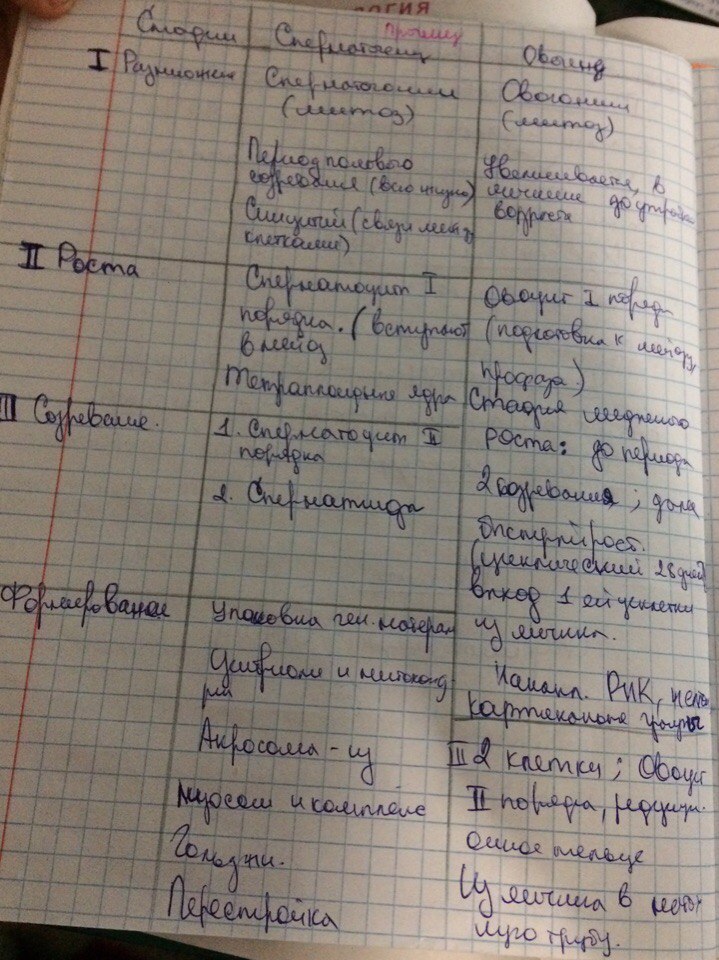 ОГИЯ
Стадии
Сперматоген
Прошиц
Овоген
I Размножен
Сперматогонии
(митоз)
Овогонии
(митоз)
Период полового
созревания (всю жизнь)
Синцитий (связи межд
клетками)
Увеличивается, в
яичнике до
возраста
II Роста
Сперматоцит I
порядка. (вступают
в мейоз
Тетраплоидные ядра
Овоцит I поряд
(подготовка к мейозу,
профаза)
Стадия медленного
роста: до периода
2 созревания; далее
быстрый рост.
(циклический 28 дней)
выход 1 ой клетки
из яичника.
Накапл. РНК,
кортикальные гранулы
III Созревание.
1. Сперматоцит II
порядка
2. Сперматида
Формирование
Упаковка ген. материал
Центриоли и митохонд
рии
Акросома - из
лизосом и комплекс
Гольджи.
Перестройка
III 2 клетки; Овоцит
II порядка, редукци
онное тельце
Из яичника в маточ
ную трубу.